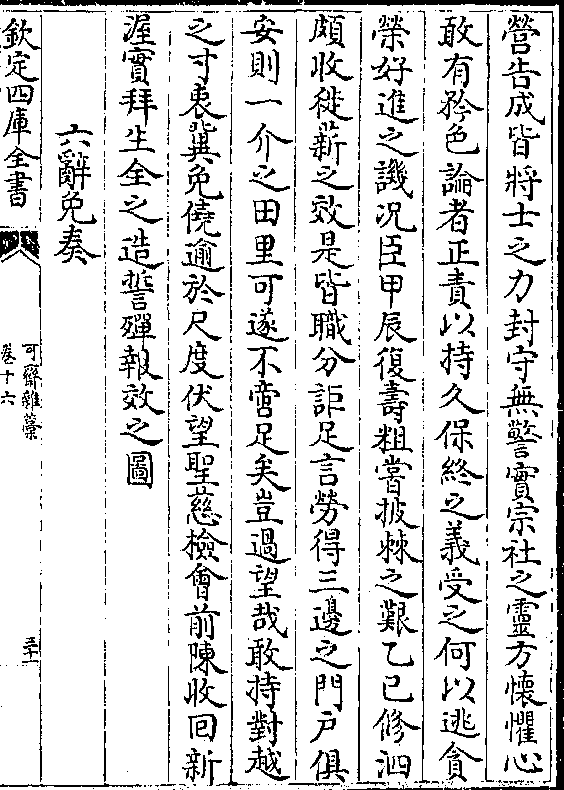 營告成皆將士之力封守無警實宗社之靈方懷懼心
敢有矜色論者正責以持久保終之義受之何以逃貪
榮好進之譏况臣甲辰復壽粗嘗披棘之艱乙巳修泗
頗收徙薪之效是皆職分詎足言勞得三邊之門户俱
安則一介之田里可遂不啻足矣豈過望哉敢持對越
之寸衷冀免僥逾於尺度伏望聖慈檢會前陳收回新
渥實拜生全之造誓殫報效之圖
六辭免奏
欽定四庫全書
可齋雜藁
卷十六